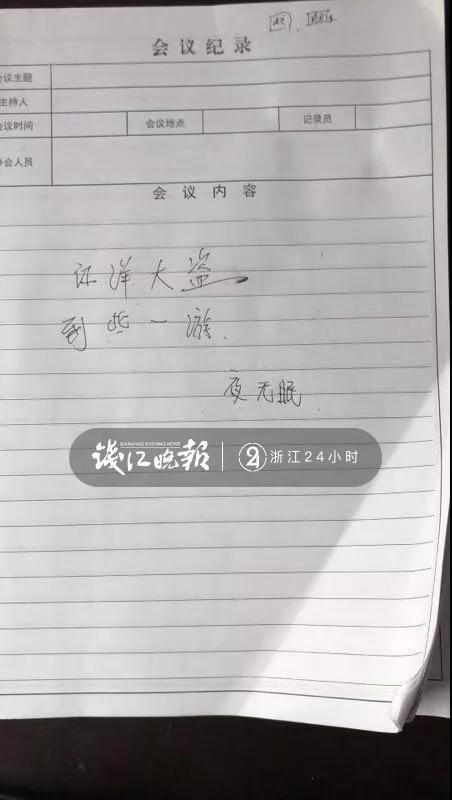 会议纪录
会议主题
主持人
会议时间 会议地点 记录员
参会人员
会议内容
江洋大盗
到些一游.
夜无眠.
QIANJIANG EVENING NEWS
钱江晚报 24 浙江24小时